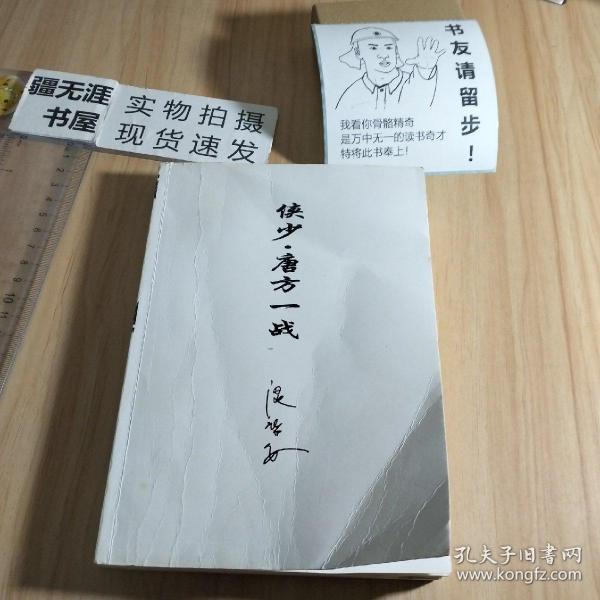 疆无涯
书屋
实物拍摄
现货速发
书友请留步！
我看你骨骼精奇
是万中无一的读书奇才
特将此书奉上！
侠少·唐方一战
温瑞安
孔夫子旧书网
www.kongfz.com